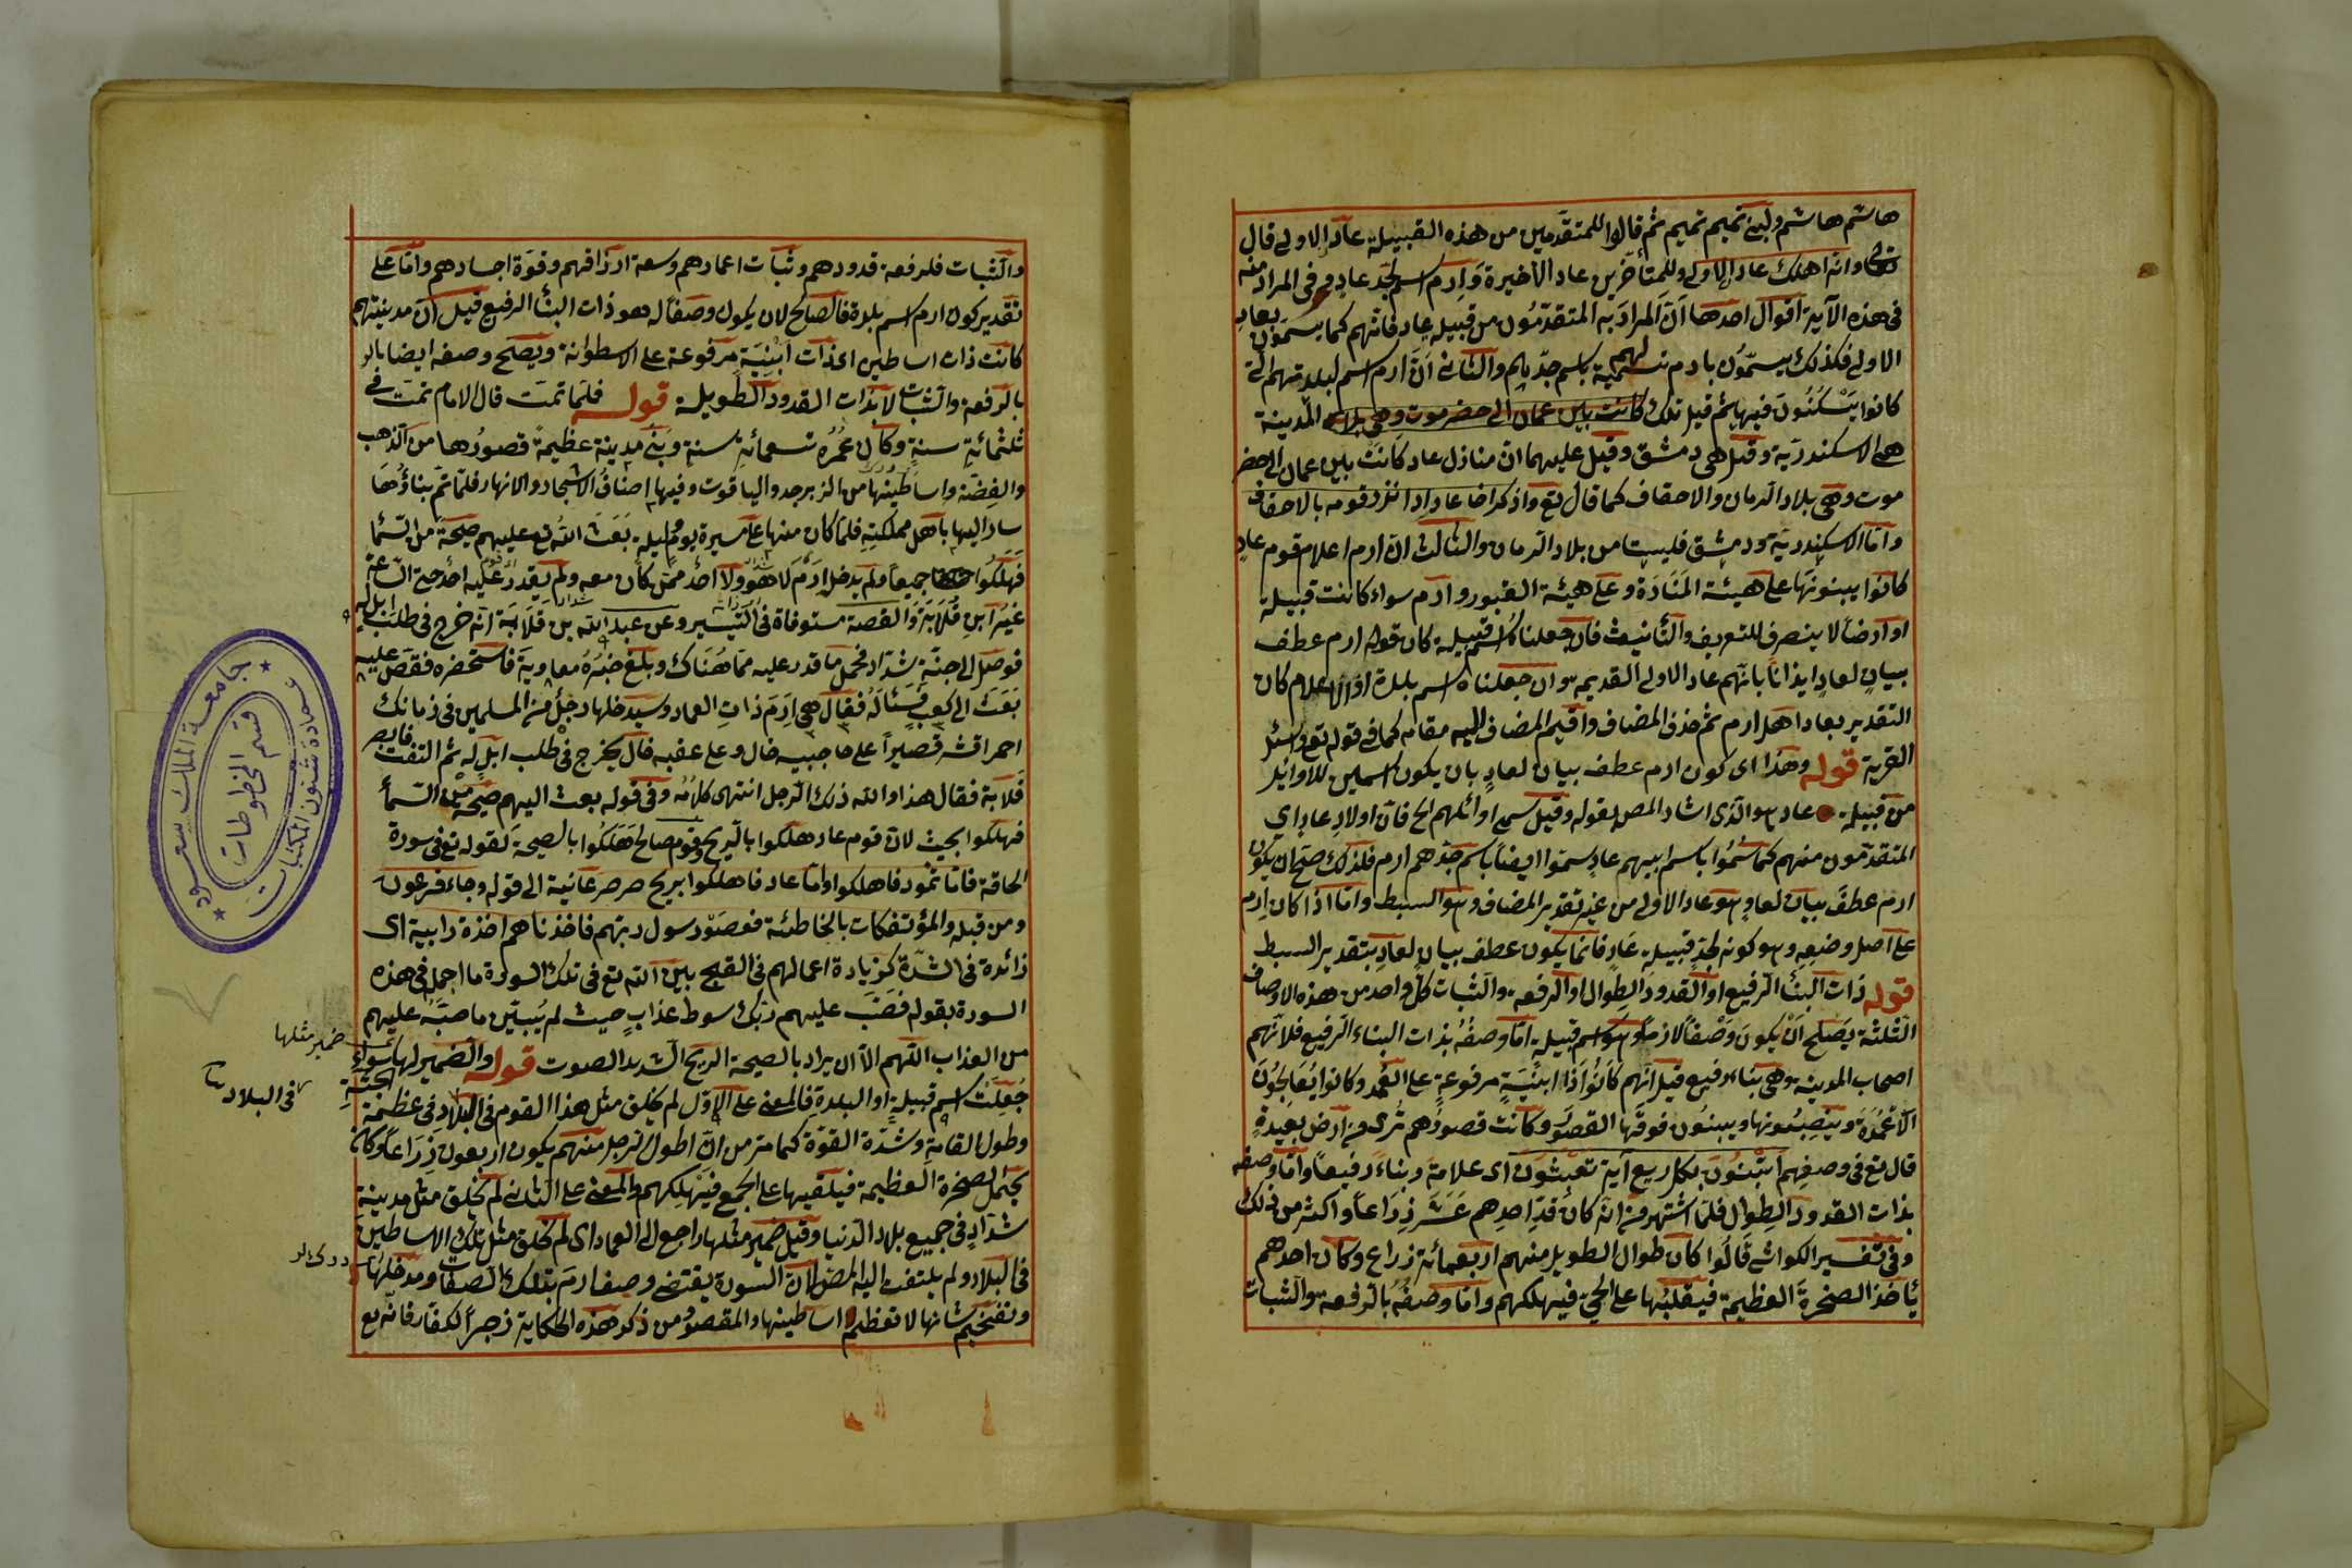 هاشم هاشم ولبني تميم تميم ثم قالوا للمتقدمين من هذه القبيلة عاد الاولى قال
تع وانه اهلك عاد الاولى وللمتأخرين عاد الاخيرة وَارم اسم لجد عادٍ وفى المراد منه
فى هذه الآية اقوال احدها اَنَّ المرادَ به المتقدّمُون من قبيلة عادٍ فانهم كما يسمّون بعادٍ
الاولى فكذلك يسمّون بارم تسمية لهم باسم جدّهم والثانى اَنّ ارم اسم لبلدتهم التى
كانوا يَسْكُنُونَ فيها ثم قيل تلك المدينة
هى الاسكندرية وقيل هى دمشق وقيل عليهما ان منازل عاد كانت بين عمان الى حضر
موت وهى بلاد الرمان والاحقاف كما قال تع واذكر اخا عاد اذ انذر قومه بالاحقاف
واما الاسكندرية ودمشق فليستا من بلاد الرمان والثالث ان ارم اعلام قوم عادٍ
كانوا يبنونها على هيئة المَنَارَة وعلى هيئة القبور وارم سواء كانت قبيلة
او ارضا لا ينصرف للتعريف والتأنيث فان جعلناه اسم قبيلة كان قوله ارم عطف
بيانٍ لعادٍ ايذانًا بانهم عاد الاولى القديمة وان جعلناه اسم بلدة او الاعلام كان
التقدير بعاد اهل ارم ثم حذف المضاف واقيم المضاف اليه مقامه كما فى قوله تع واسئل
القرية قوله وهذا اى كون ارم عطف بيان لعادٍ بان يكون اسمين للاوائل
من قبيلة عاد هو الذى اشار المص بقوله وقيل سمى اوائلهم الخ فان اولاد عاد اى
المتقدّمون منهم كما سُمُّوا باسم ابيهم عادٍ سمّوا ايضًا باسم جدّهم ارم فلذلك صحّ ان يكون
ارم عطفَ بيان لعادٍ هو عاد الاولى من غير تقدير المضاف وهو السبط واما اذا كان ارم
على اصل وضعه وهو كونه لجدّ قبيلة عَادٍ فانما يكون عطف بيانٍ لعادٍ بتقدير السبط
قوله ذات البناء الرفيع او القدود الطِوال او الرفعة والثبات كلّ واحد من هذه الاوصاف
الثلثة يصلح اَنْ يكونَ وَصْفًا لارم وهو اسم قبيلة امّا وصفُهُ بذات البناء الرفيع فلانّهم
اصحاب المدينة وهى بناء رفيع قيل انّهم كَانُوا ذا ابنيةٍ مرفوعةٍ على العُمُد وكانوا يُعَالِجُونَ
الاَعْمُدَةَ وينصِبُونها ويبنُون فوقها القصور وكانت قصورُهم تُرى من ارض بعيدةٍ
قال تع فى وصفهم اتبنون بكل ريع آية تعبثون اى علامةً وبناءً رفيعًا واما وصفه
بذات القدود الطِوال فلما اشتهر من انه كان قدّ احدهم عَشَرَ ذِرَاعاً واكثر من ذلك
وفى تفسير الكواشى قَالُوا كان طول الطويل منهم اربعمائة ذراع وكان احدهم
يأخذ الصخرةَ العظيمة فيقلبُها على الحى فيهلكهم واما وصفُهُ بالرفعة والثبات
والثبات فلرفعة قدودهم وثبات اعمارهم وسعة ارزاقهم وقوّة اجسادهم وامّا على
تقدير كون ارم اسم بلدة فالصالح لان يكون وصفًا له هو ذات البناء الرفيع قيل انّ مدينتهم
كانت ذات اساطين اى ذات اَبْنِيَةٍ مرفوعة على الاسطوانة ويصلح وصفه ايضا بالر
بالرفعة والثبات لا بذات القدود الطويلة قوله فلما تمت قال الامام تمت فى
ثلثمائةِ سنةٍ وكان عُمُرُه تسعمائةِ سنةٍ وبُنِىَ مدينة عظيمةً قصورُها من الذهب
والفضّة واساطينها من الزبرجد والياقوت وفيها اصنافُ الاشجار والانهار فلمّا تمّ بناؤُهَا
سار اليها باهل مملكتِهِ فلمّا كان منها على مسيرة يومٍ وليلة بَعَثَ اللهُ تع عليهم صيحةً من السّماء
فَهلكُوا جميعاً ولم يدخل اِرَمَ لا هو ولا احدٌ ممّن كان معه ولم يقدر عليه احد حتى السّاعة
غيرُ ابنِ قُلَابَةَ والقصة مستوفاة فى التيسير وعن عبد الله بن قلابَةَ انه خرج فى طلب ابل له
فوصل الى جنّةِ شدّاد فحمل ما قدر عليه مما هُنَاك وبلغ خبرُهُ معاويةَ فاستحضره فقصّ عليه
بَعَثَ الى كعبٍ فسَئالَهُ فقال هى اِرَمَ ذاتِ العماد وسيدخلها رجلٌ من المسلمين فى زمانك
احمر اشقر قصيراً على حاجبيه خال وعلى عقبه خال يخرج فى طلب ابلٍ له ثم التفت فابصر
قلابة فقال هذا والله ذلك الرجل انتهى كلامُهُ وفى قوله بعث اليهم صيحة من السماء
فهلكوا بحث لان قوم عاد هلكوا بالرّيح وقوم صالح هَلَكُوا بالصيحة لقوله تع فى سورة
الحاقة فامّا ثمود فاهلكوا وامّا عاد فاهلكوا بريح صرصر عاتية الى قوله وجاء فرعون
ومن قبله والمؤتفكات بالخاطئة فعصَوْا رسول ربّهم فاخذناهم اخذة رابية اى
زائدة فى الشدّة كزيادة اعمالهم فى القبح بين الله تع فى تلك السورة ما اجمل فى هذه
السورة بقوله فَصَبَّ عليهم ربّك سوط عذابٍ حيث لم يُبيّن ما صبّه عليهم
من العذاب اللّهم الا ان يراد بالصيحة الريح الشديد الصوت قوله والضمير لها سواءٌ
جُعِلَتْ اسم قبيلةٍ او البلدةِ فالمعنى على الاوّل لم يخلق مثل هذا القوم فى البلاد فى عظيمة الجثّةِ
وطول القامةِ وشدّة القوّة كما مرّ من انّ اطول الرجل منهم يكون اربعون ذِرَاعاً وكان
يحمل الصخرة العظيمة فيلقيها على الجمع فيُهلِكهم والمعنى على الثانى لم يخلق مثل مدينةِ
شدّادٍ فى جميع بلاد الدنيا وقيل ضمير مثلها راجع الى العماد اى لم يخلق مثل تلك الاساطين
فى البلاد ولم يلتفت اليه المص لانّ السورة يقتضى وصف ارمَ بتلك الصفات ومدخلها
وتفخيم شانها لا تعظيم اساطينها والمقصود من ذكر هذه الحكاية زجراً لكفّار فانّه تع
ضمير مثلها
فى البلاد
جامعة الملك سعود
عمادة شئون المكتبات
قسم المخطوطات